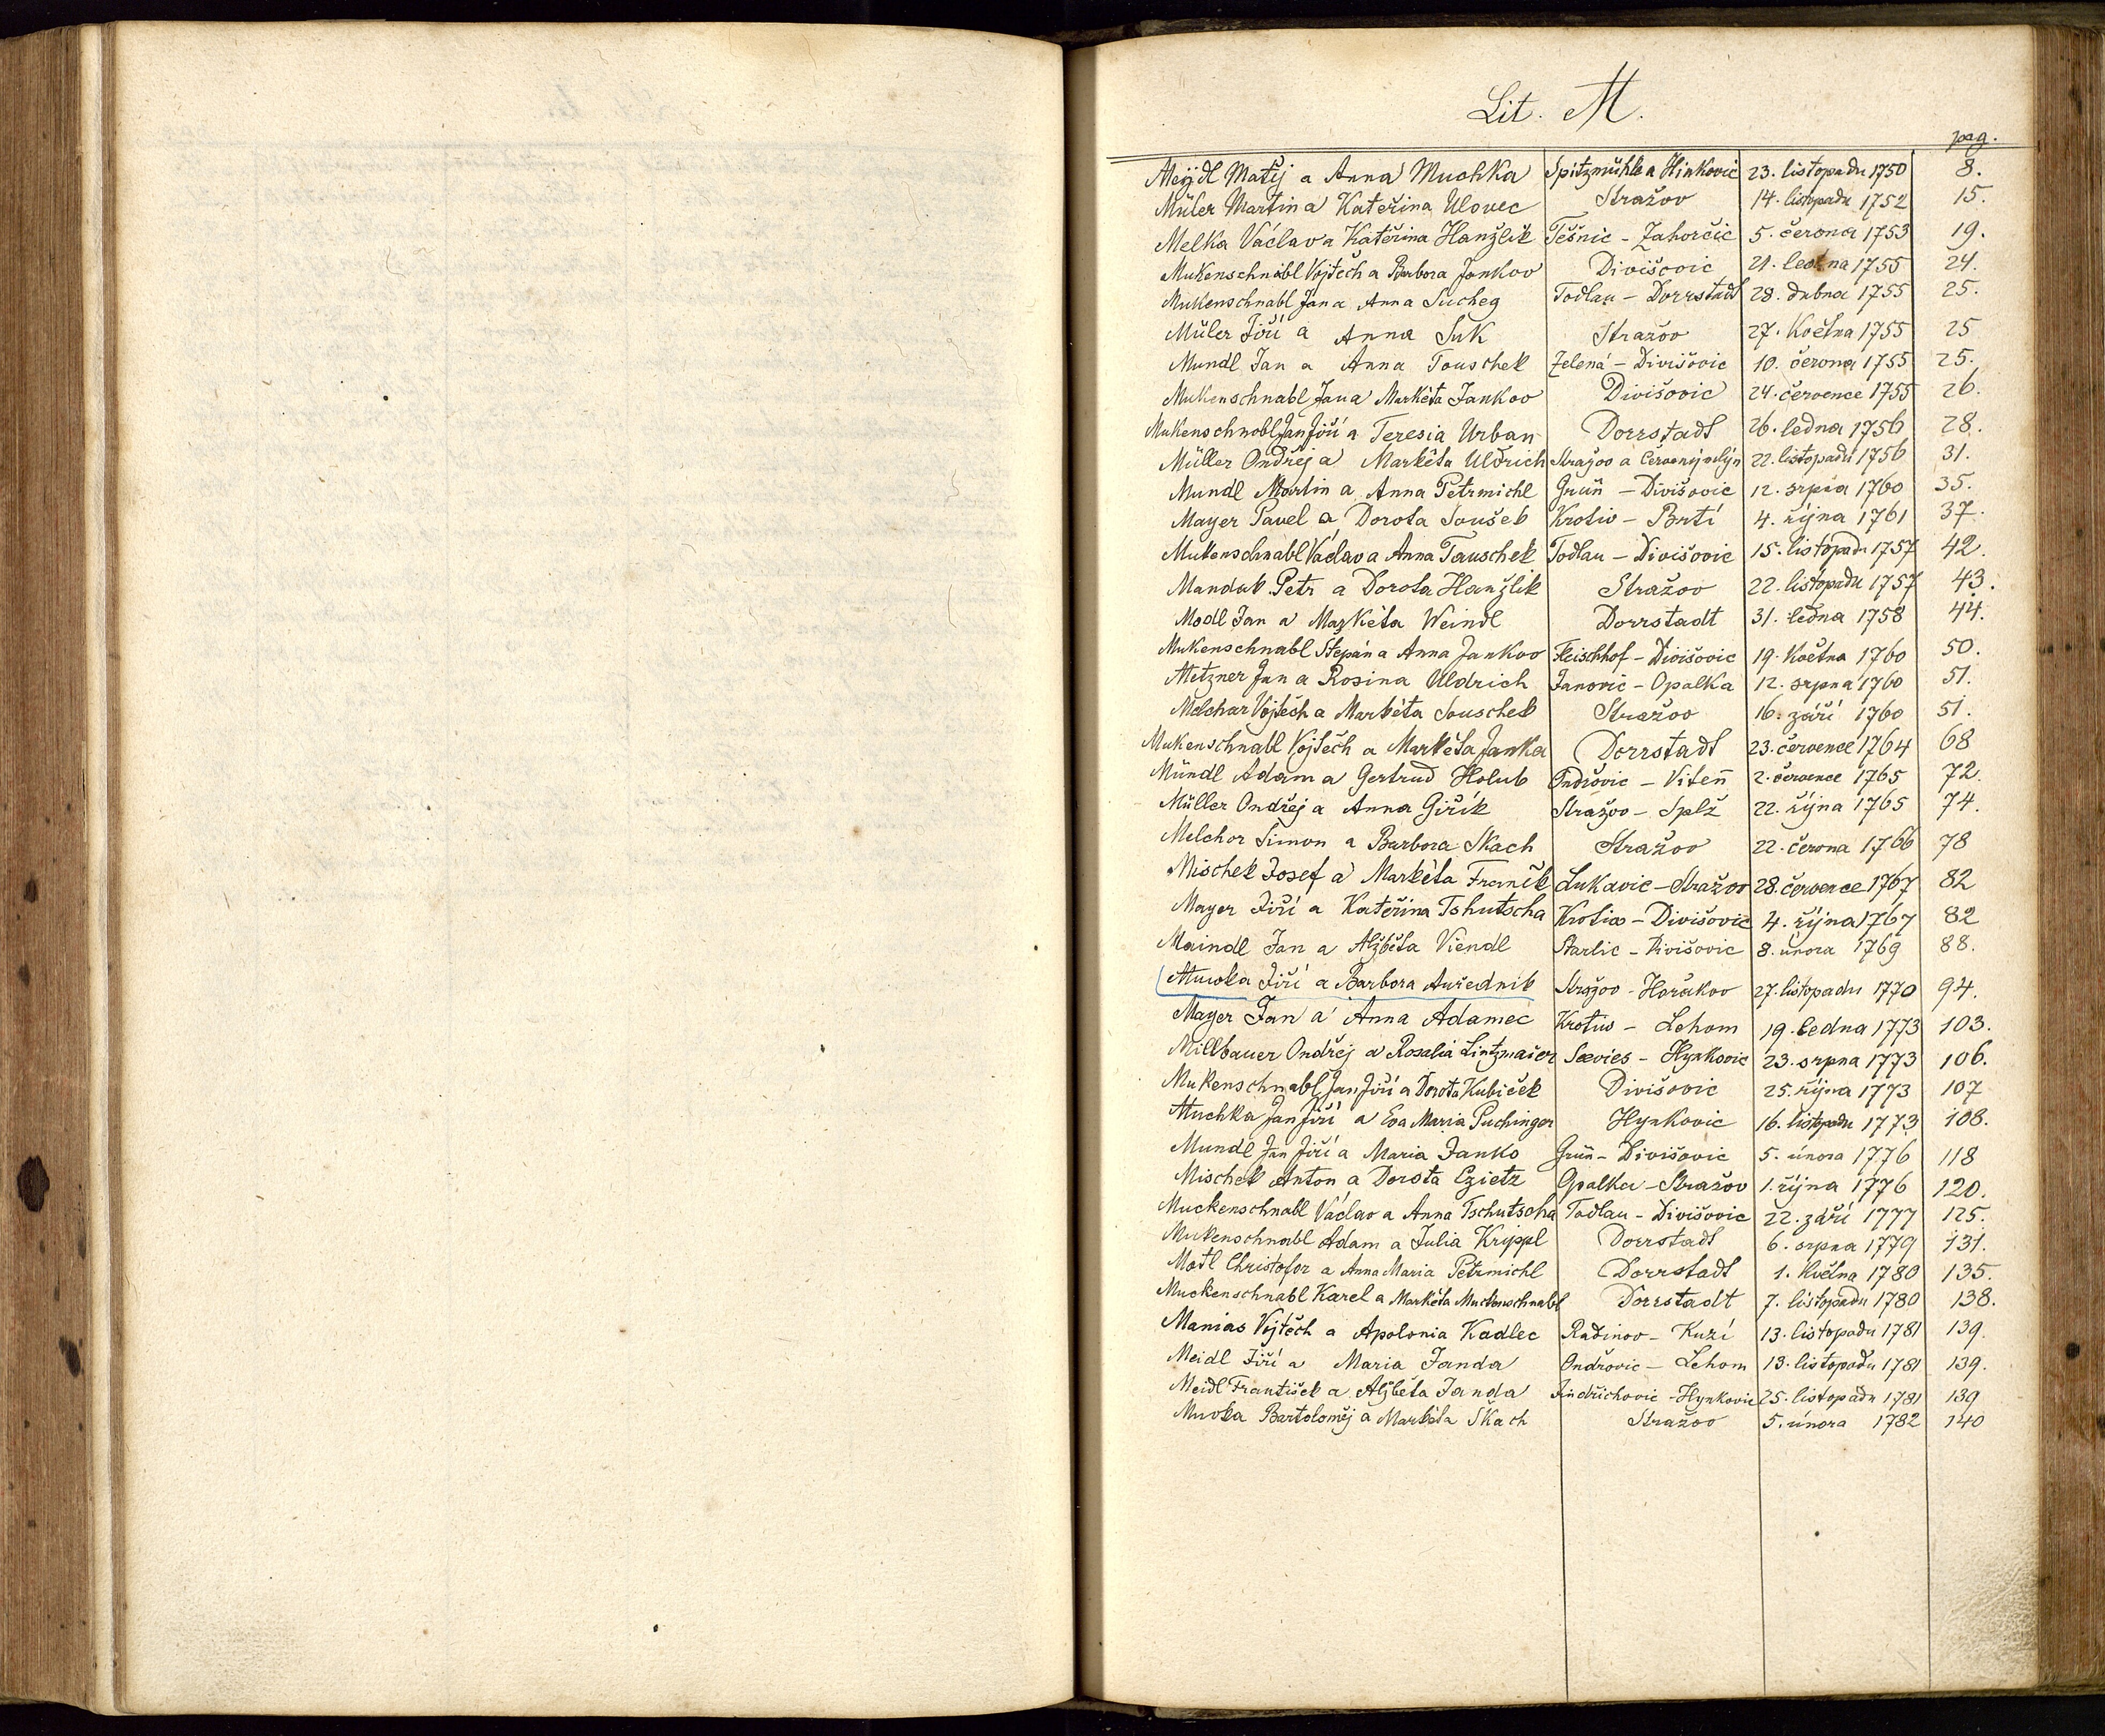 Lit. M.
pag.
Meydl Matěj a Anna Muchka Spitzmühle a Hinkovic 23. listopadu 1750 8.
Müler Martin a Kateřina Ulovec Stražov 14. listopadu 1752 15.
Melka Václav a Kateřina Hanžlik Těšnic - Zahorčic 5. června 1753 19.
Mukenschnabl Vojtěch a Barbora Jankov Divišovic 21. ledna 1755 24.
Mukenschnabl Jan a Anna Sucheg Todlau - Dorrstadt 28. dubna 1755 25.
Müler Jiří a Anna Suk Stražov 27. Května 1755 25
Mundl Jan a Anna Touschek Zelená - Divišovic 10. června 1755 25.
Mukenschnabl Jan a Markéta Jankov Divišovic 24. července 1755 26.
Mukenschnabl Jan Jiří a Teresia Urban Dorrstadt 26. ledna 1756 28.
Müller Ondřej a Markéta Uldrich Stražov a Červený mlýn 22. listopadu 1756 31.
Mundl Martin a Anna Petrmichl Grün - Divišovic 12. srpna 1760 35.
Mayer Pavel a Dorota Soušek Krotiv - Brtí 4. října 1761 37.
Mukenschnabl Václav a Anna Tauschek Todlau - Divišovic 15. listopadu 1757 42.
Mandak Petr a Dorota Hanžlik Stražov 22. listopadu 1757 43.
Modl Jan a Markéta Weindl Dorrstadt 31. ledna 1758 44.
Mukenschnabl Štepán a Anna Jankov Fleischhof - Divišovic 19. Května 1760 50.
Metzner Jan a Rosina Uldrich Janovic - Opalka 12. srpna 1760 51.
Melchar Vojtěch a Markéta Souschek Stražov 16. září 1760 51.
Mukenschnabl Vojtěch a Markéta Janka Dorrstadt 23. července 1764 68
Mündl Adam a Gertrud Holub Ondřovic - Viteň 2. července 1765 72.
Müller Ondřej a Anna Giřík Stražov - Splž 22. října 1765 74.
Melchor Simon a Barbora Skach Stražov 22. června 1766 78
Mischek Josef a Markéta Franěk Lukavic - Stražov 28. července 1767 82
Mayer Jiří a Kateřina Tshutscha Krotiv - Divišovic 4. října 1767 82
Maindl Jan a Alžběta Viendl Starlic - Divišovic 8. února 1769 88.
Muwka Jiří a Barbora Auředník Stražov - Horákov 27. listopadu 1770 94.
Mayer Jan a Anna Adamec Krotiv - Lehom 19. ledna 1773 103.
Millbauer Ondřej a Rosalia Lintzmaier Seevies - Hynkovic 23. srpna 1773 106.
Mukenschnabl Jan Jiří a Dorota Kubiček Divišovic 25. října 1773 107
Muchka Jan Jiří a Eva Maria Puchinger Hynkovic 16. listopadu 1773 108.
Mundl Jan Jiří a Maria Janko Grün - Divišovic 5. února 1776 118
Mischek Anton a Dorota Czietz Opalka - Stražov 1. října 1776 120.
Muckenschnabl Václav a Anna Tschutscha Todlau - Divišovic 22. září 1777 125.
Mukenschnabl Adam a Julia Krippl Dorrstadt 6. srpna 1779 131.
Motl Christofor a Anna Maria Petrmichl Dorrstadt 1. Května 1780 135.
Muckenschnabl Karel a Markéta Muckenschnabl Dorrstadt 7. listopadu 1780 138.
Manias Vojtěch a Apolonia Kadlec Radinov - Kuzí 13. listopadu 1781 139.
Meidl Jiří a Maria Janda Ondřovic - Lehom 13. listopadu 1781 139.
Meidl František a Alžběta Janda Jindřichovic - Hynkovic 25. listopadu 1781 139
Muvka Bartoloměj a Markéta Skach Stražov 5. února 1782 140